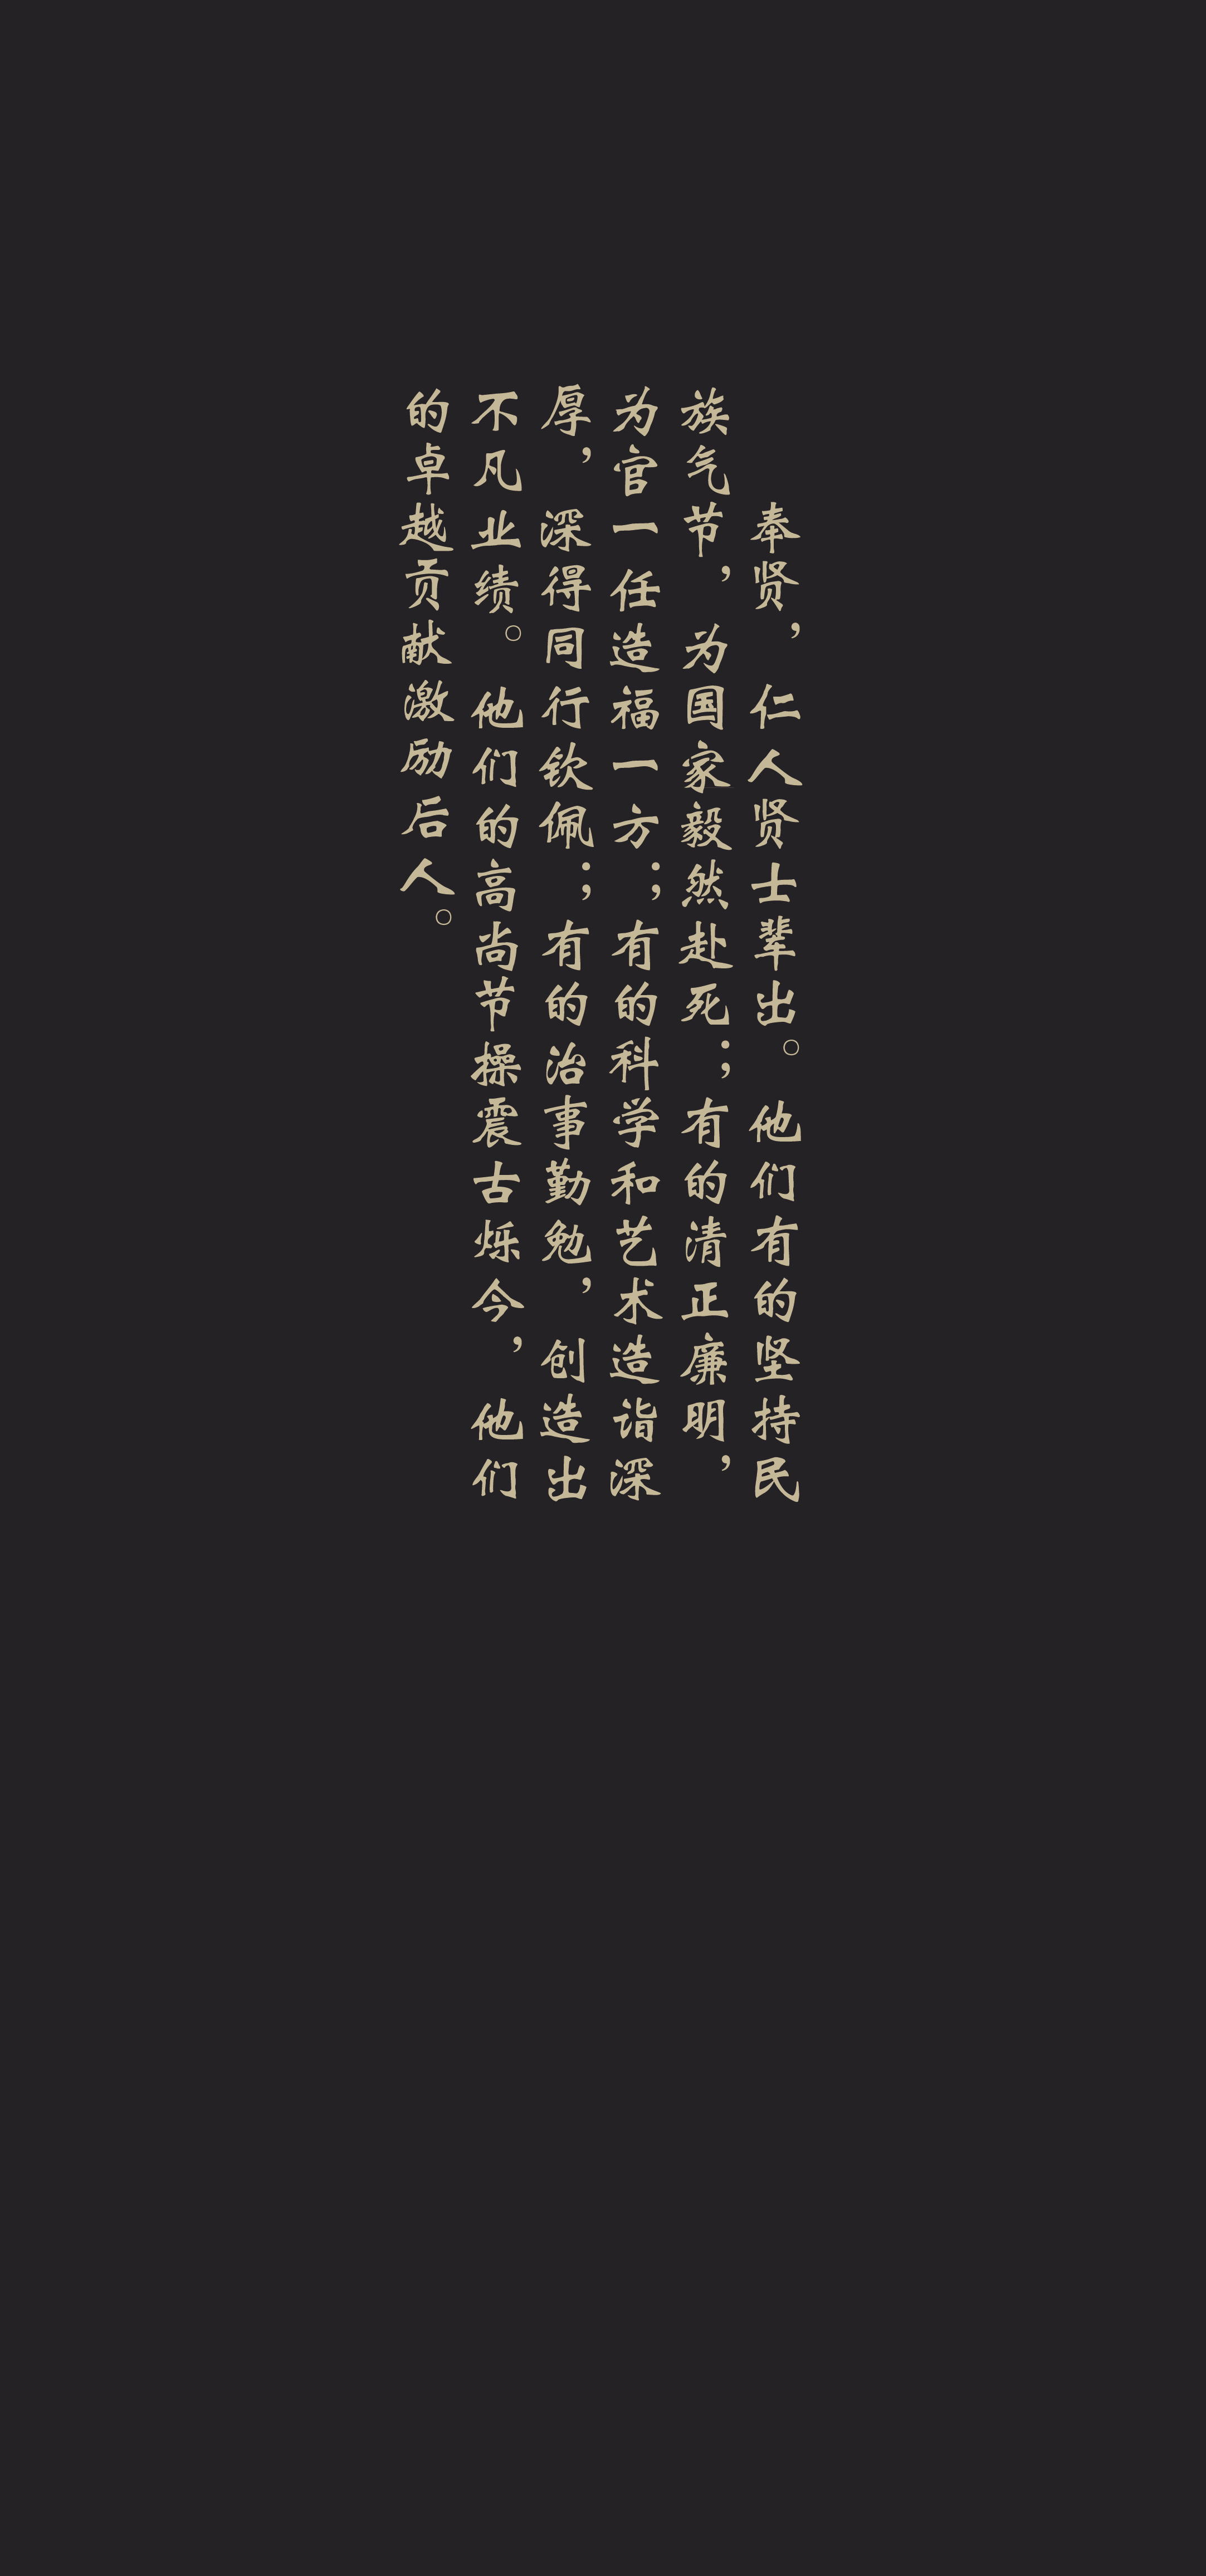 奉贤，仁人贤士辈出。他们有的坚持民
族气节，为国家毅然赴死；有的清正廉明，
为官一任造福一方；有的科学和艺术造诣深
厚，深得同行钦佩；有的治事勤勉，创造出
不凡业绩。他们的高尚节操震古烁今，他们
的卓越贡献激励后人。